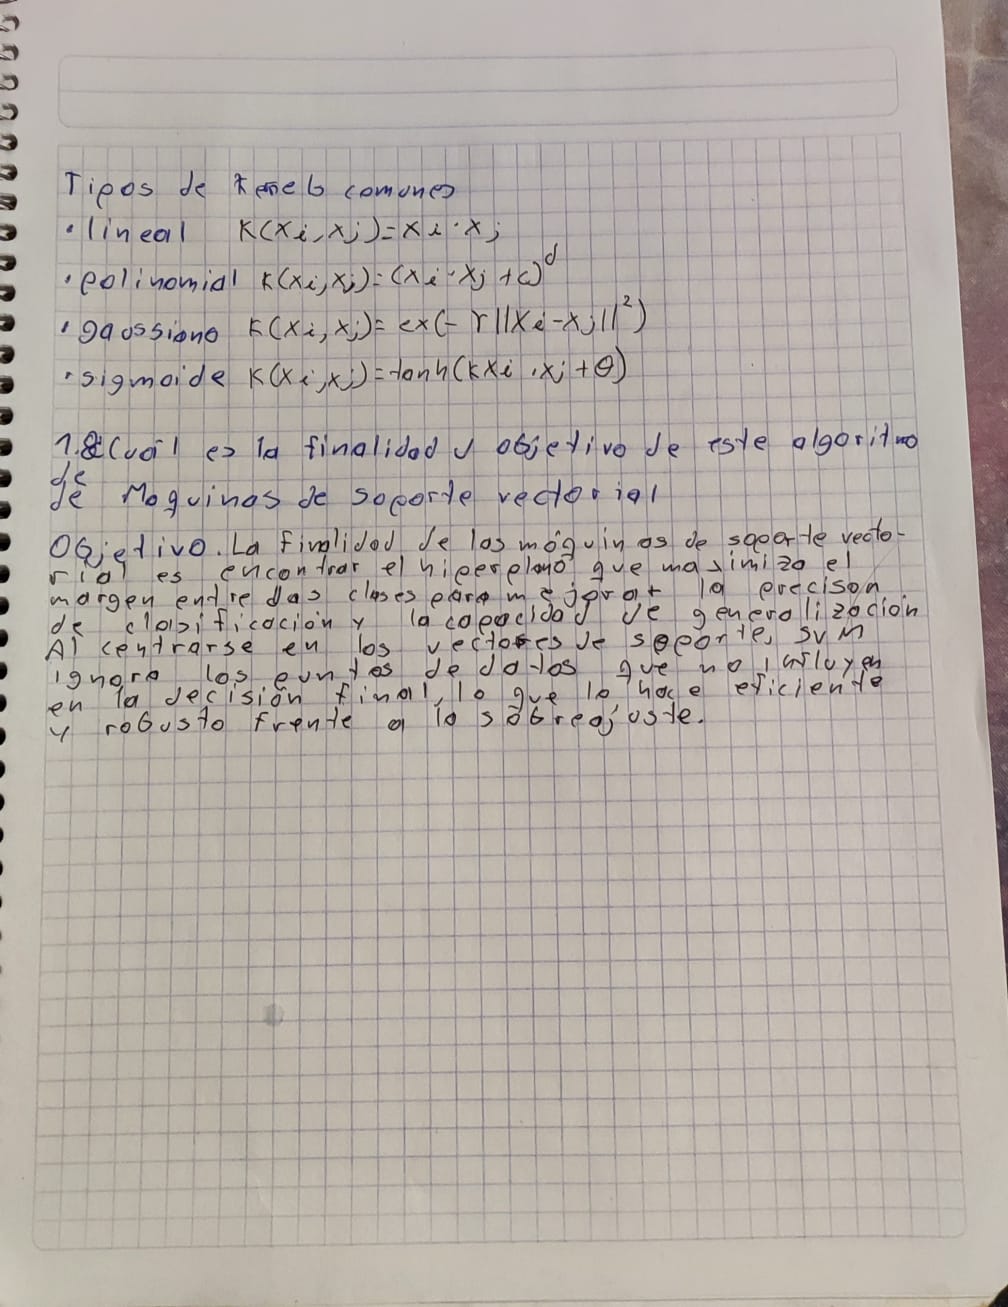 Tipos de kernels comunes
• lineal K(xi,xj)=xi·xj
• polinomial K(xi,xj)=(xi·xj+c)^d
• gaussiano K(xi,xj)=ex(-γ||xi-xj||^2)
• sigmoide K(xi,xj)=tanh(kxi·xj+θ)
1.8 Cuál es la finalidad y objetivo de este algoritmo
de
de Maquinas de soporte vectorial
Objetivo. La finalidad de las máquinas de soporte vecto-
rial es encontrar el hiperplano que maximiza el
margen entre das clases para mejorar la precison
de clasificación y la capacidad de generalización
Al centrarse en los vectores de soporte, SVM
ignora los puntos de datos que no influyen
en la decisión final, lo que lo hace eficiente
y robusto frente a lo sobreajuste.